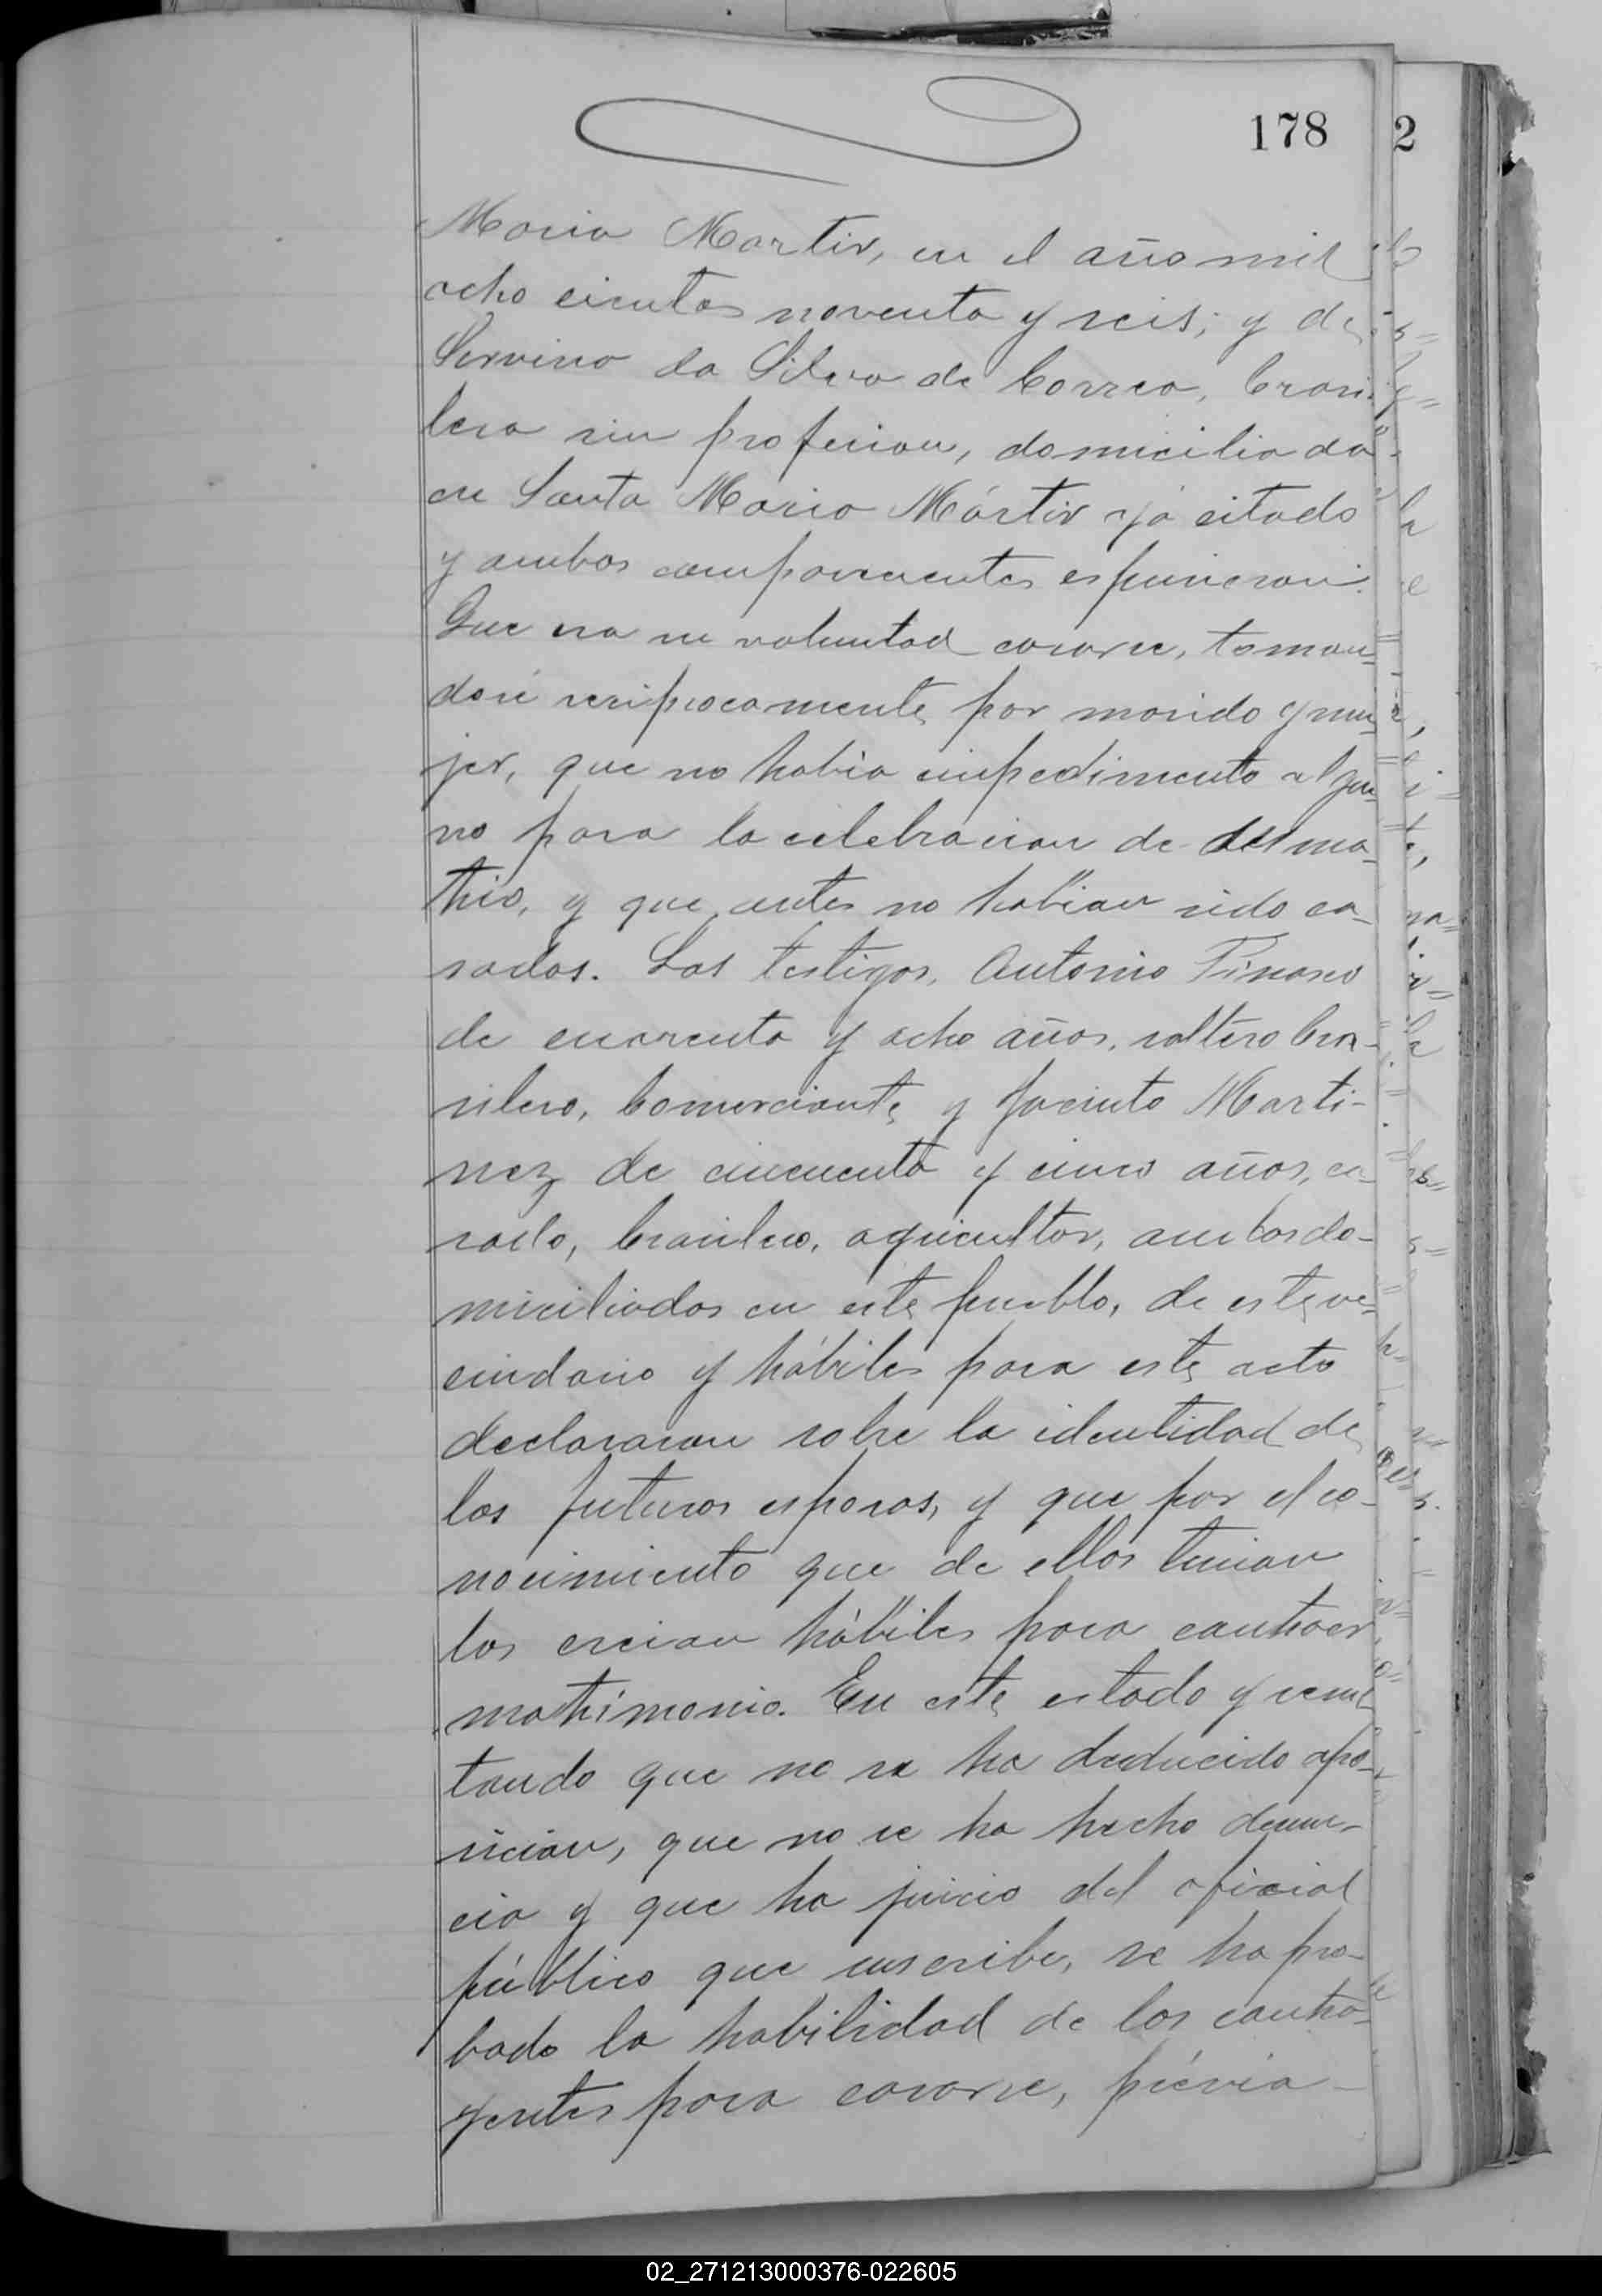 178
2
Maria Martir, en el año mil
ocho cientos noventa y seis; y de
da Silva de Correa, brasi
lera sin profesion, domiciliada
en Santa Maria Mártir ya citado
y ambos comparecientes espusieron:
Que era su voluntad casarse, toman=
dose reciprocamente por marido y mu=
jer, que no habia impedimento algu=
no para la celebracion de del ma-
trio, y que antes no habian sido ca-
sados. Los testigos, Antonio
de cuarenta y ocho años, soltero bra-
silero, Comerciante y Jacinto Marti-
nez de cincuenta y cinco años, ca-
sado, brasilero, agricultor, ambos do-
miciliados en este pueblo, de este ve=
cindario y hábiles para este acto
declararon sobre la identidad de
los futuros esposos, y que por el co-
nocimiento que de ellos tenian
los creian hábiles para contraer
matrimonio. En este estado y resul
tando que no se ha deducido opo-
sicion, que no se ha hecho denun-
cia y que ha juicio del oficial
público que suscribe, se ha pro-
bado la habilidad de los contra-
yentes para casarse, prévia-
02_271213000376-022605